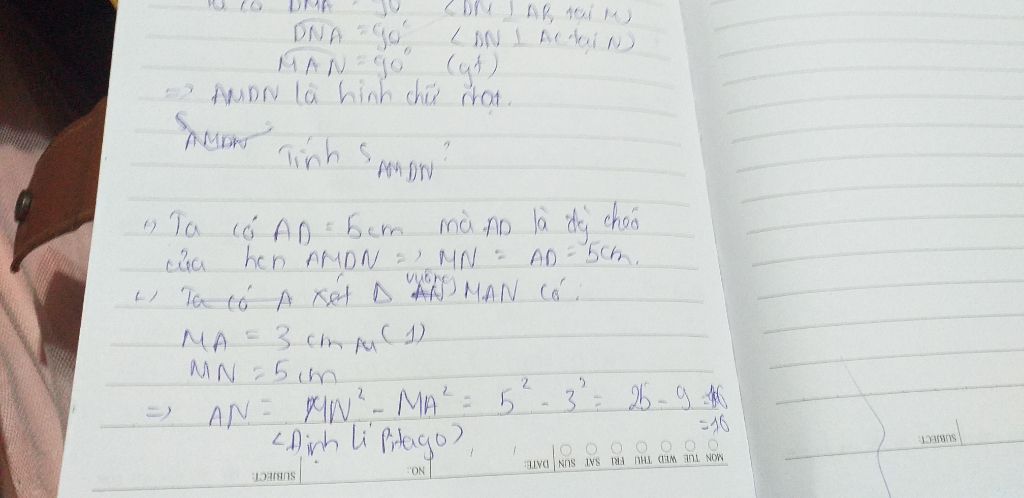 Ta có DMA = 90° (DM ⊥ AB tại M)
DNA = 90° (DN ⊥ AC tại N)
MAN = 90° (gt)
=> AMDN là hình chữ nhật.
S AMDN
Tính S AMDN ?
Ta có AD = 5cm mà AD là đg chéo
của hcn AMDN => MN = AD = 5cm.
Ta có A xét Δ vuông MAN có:
MA = 3 cm (1)
MN = 5 cm
=> AN = MN² - MA² = 5² - 3² = 25 - 9
= 16
(Định lí Pitago)
MON TUE WED THU FRI SAT SUN DATE:
NO.:
SUBJECT:
SUBJECT: